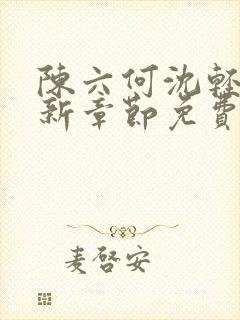 陳六何沈輕
新章節免費
麦啓安